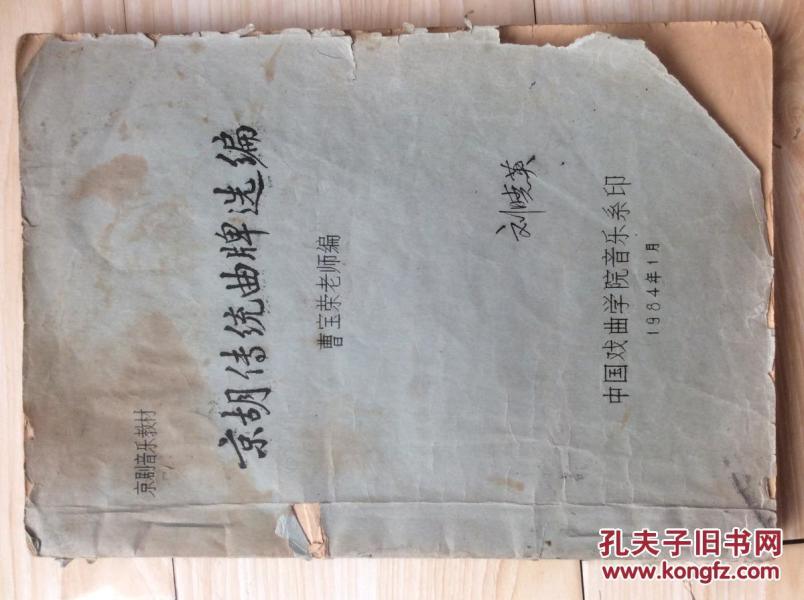 京剧音乐教材
京胡传统曲牌选编
曹宝荣老师编
刘晓英
中国戏曲学院音乐系印
1984年1月
孔夫子旧书网
www.kongfz.com